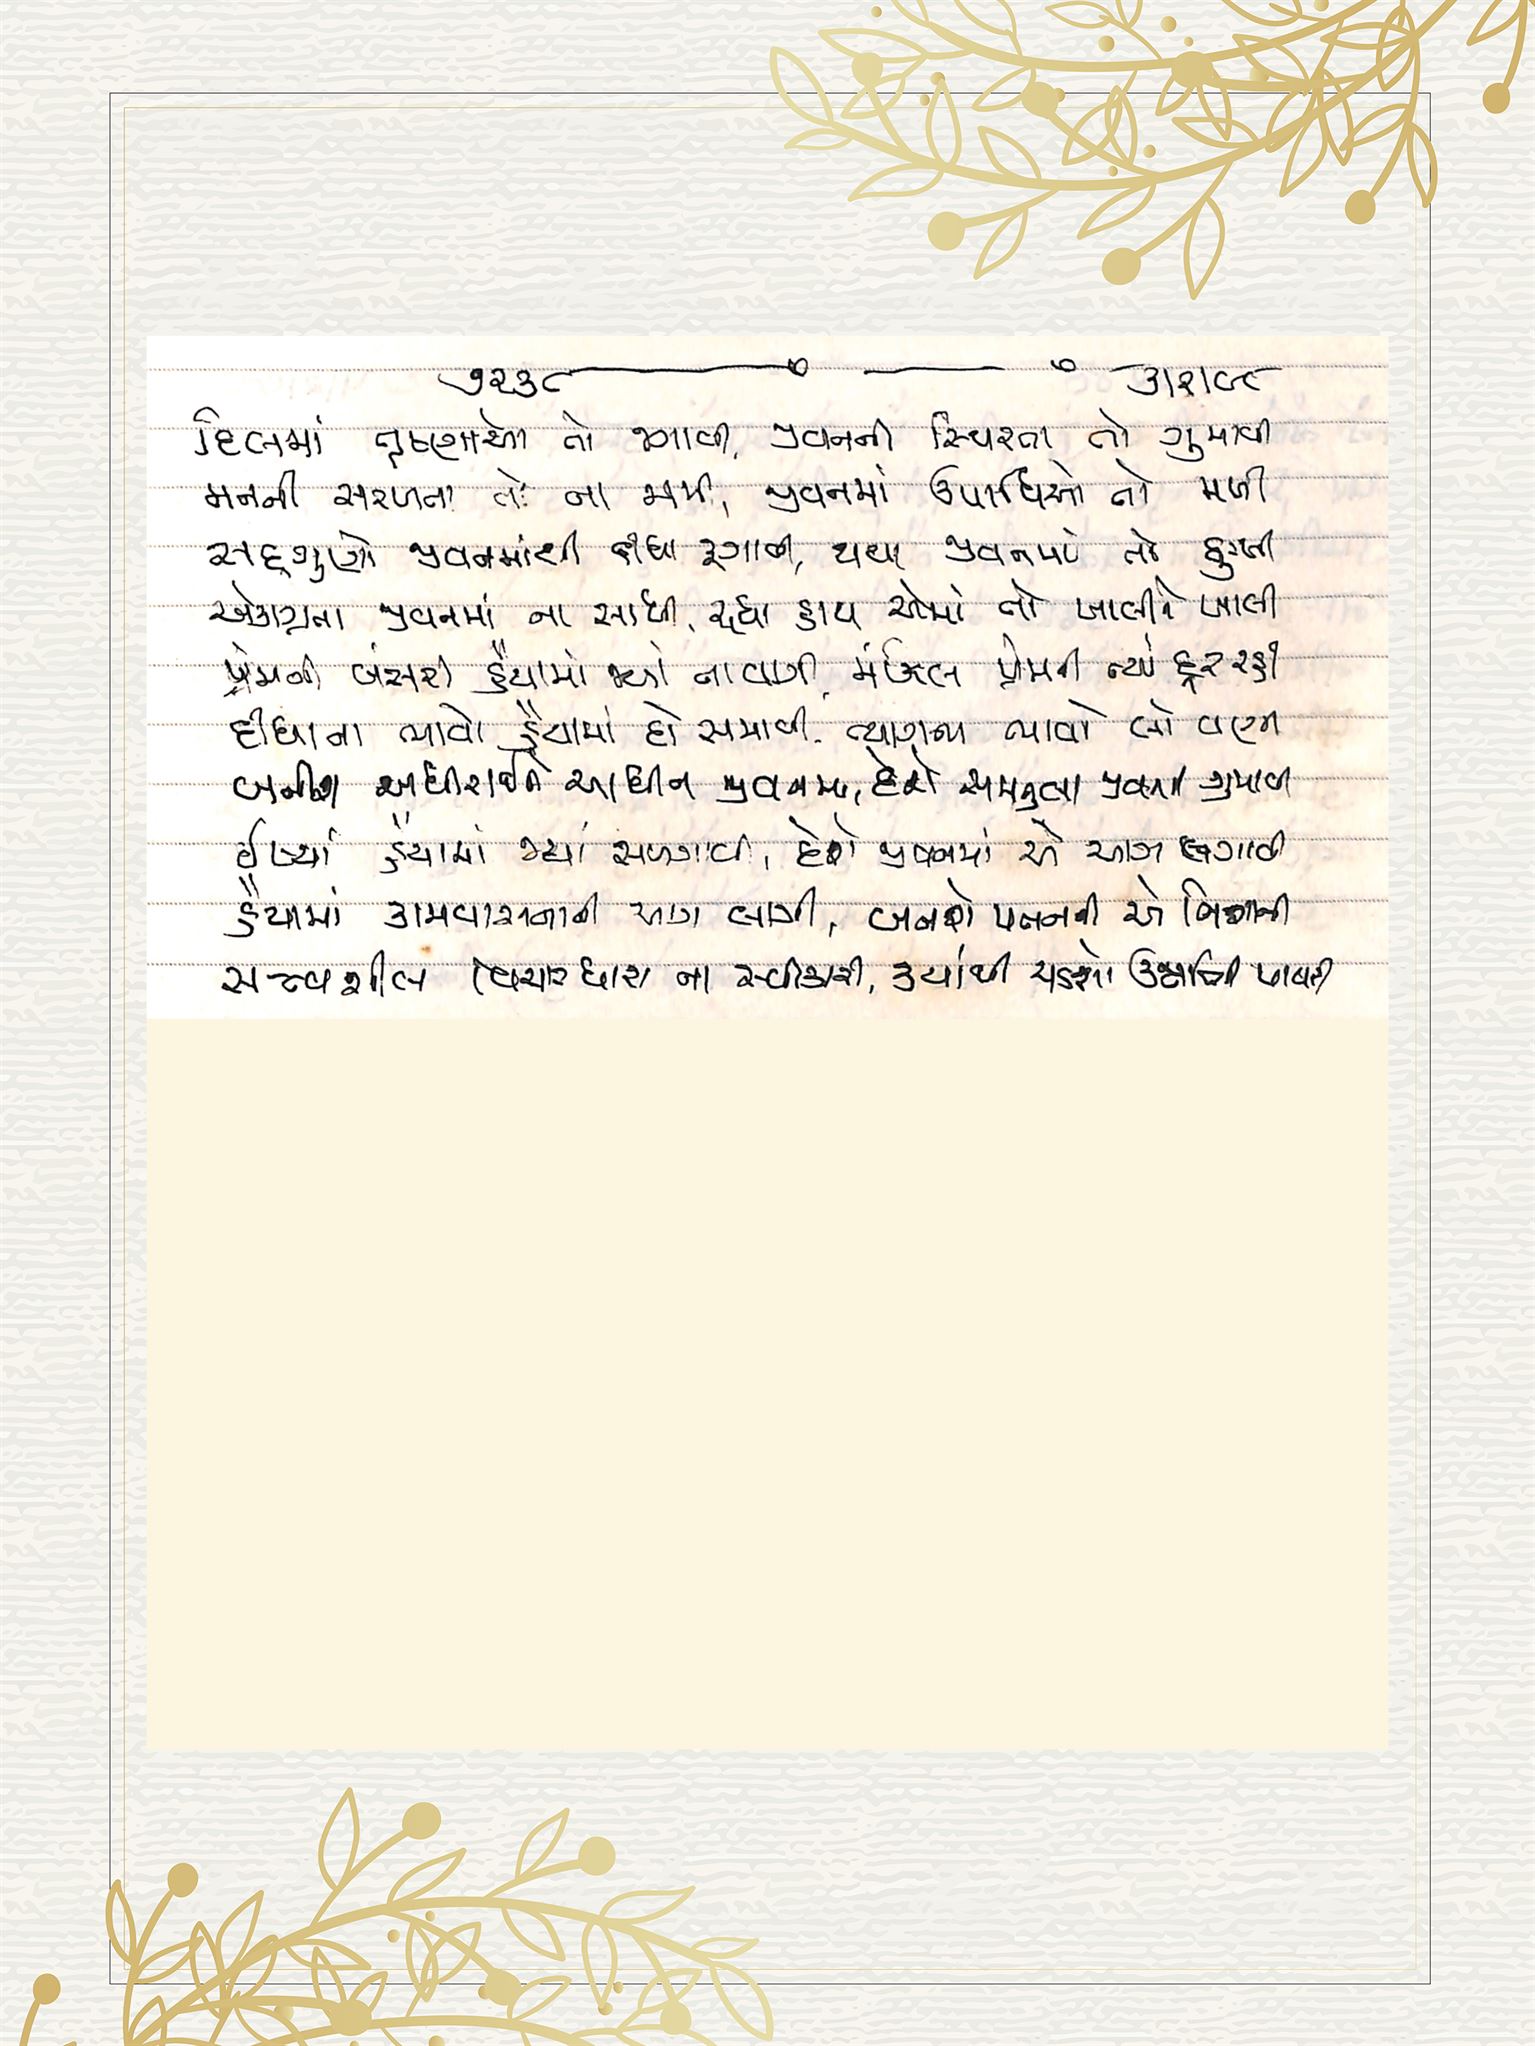 ૧૨૩૮ ૩।૨।૮૮
દિલમાં તૃષ્ણાઓ તો જાગી, જીવનની સ્થિરતા તો ગુમાવી
મનની સરળતા તો ના જામી, જીવનમાં ઉપાધિઓ તો મળી
સદ્દગુણો જીવનમાંથી દીધા ત્યાગી, થયા જીવનમાં તો દુઃખી
એકાગ્રતા જીવનમાં ના સાધી, રહ્યા હાથ એમાં તો ખાલીને ખાલી
પ્રેમની બંસરી હૈયામાં જ્યાં ના વાગી, મંઝિલ પ્રેમની ત્યાં દૂર રહી
દીધા ના ભાવો હૈયામાં જો સમાવી, ત્યાગજે ભાવો તો વણસી
બનીશ અધીરાઈને આધીન જીવનમાં, દેશે સમતુલા જીવનમાં ગુમાવી
ઈર્ષ્યા હૈયામાં જ્યાં સળગાવી, દેશે જીવનમાં એ આગ લગાવી
હૈયામાં કામવાસનાની આગ લાગી, બનશે પતનની એ નિશાની
સત્ત્વશીલ વિચારધારા ના સ્વીકારી, ક્યાંથી ચડશો ઉન્નતિની